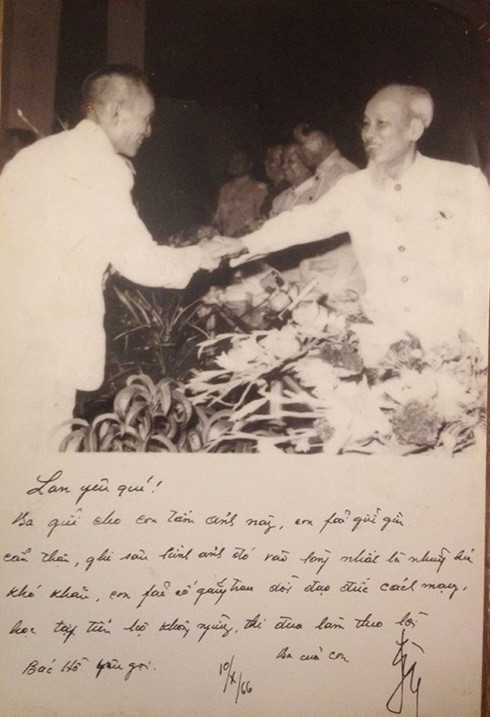 Lan yêu quí!
Ba gửi cho con tấm ảnh này, con fải giữ gìn
cẩn thận, ghi sâu hình ảnh đó vào lòng nhất là những lúc
khó khăn, con fải cố gắng trau dồi đạo đức cách mạng,
học tập tiến bộ không ngừng, thi đua làm theo lời
Bác Hồ kêu gọi.
10/X/66
Ba của con